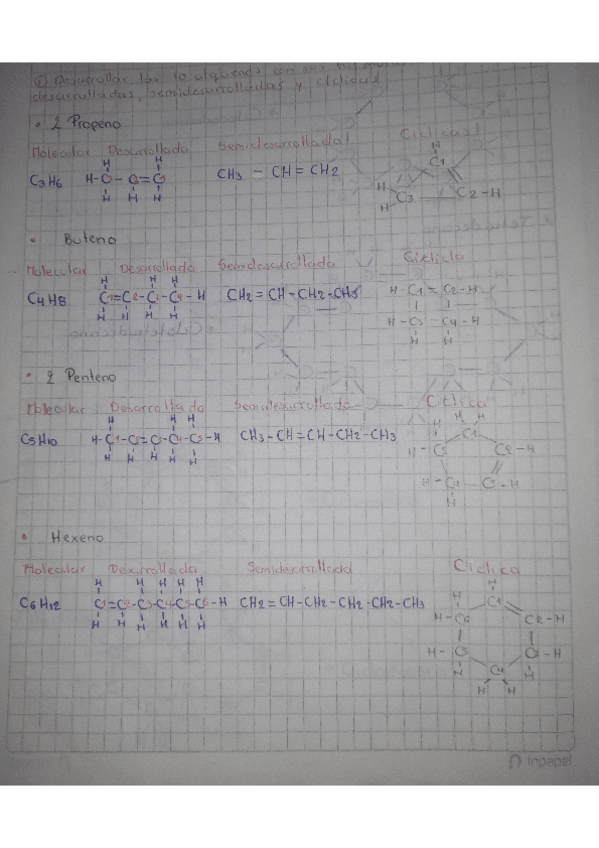 desarrolladas, semidesarrolladas y cíclicas
• 2 Propeno
Molecular Desarrollada Semidesarrollada Cíclicas
C3H6 H-C-C=C CH3 - CH = CH2
H H H H H
C1 C2-H C3 H H H
• Buteno
Molecular Desarrollada Semidesarrollada Ciclica
C4H8 C1=C2-C3-C4-H CH2=CH-CH2-CH3
H H H H H H H
H C1=C2-H
H-C3-C4-H
H H
• 2 Penteno
Molecular Desarrollada Semidesarrollada Ciclica
C5H10 H-C1-C2=C3-C4-C5-H CH3-CH=CH-CH2-CH3
• Hexeno
Molecular Desarrollada Semidesarrollada Cíclica
C6H12 C1=C2-C3-C4-C5-C6-H CH2=CH-CH2-CH2-CH2-CH3
Inpapel